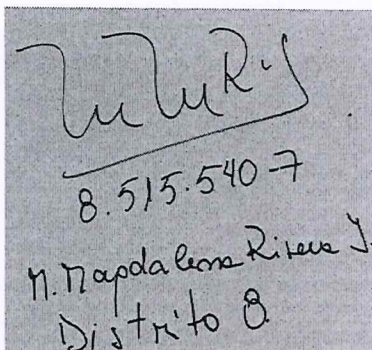 8.515.540-7
M. Magdalena Rivera I.
Distrito 8